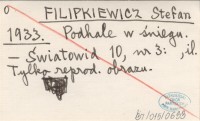 FILIPKIEWICZ Stefan
1933. Podhale w śniegu.
= Światowid 10, nr 3: , il.
Tylko reprod. obrazu.